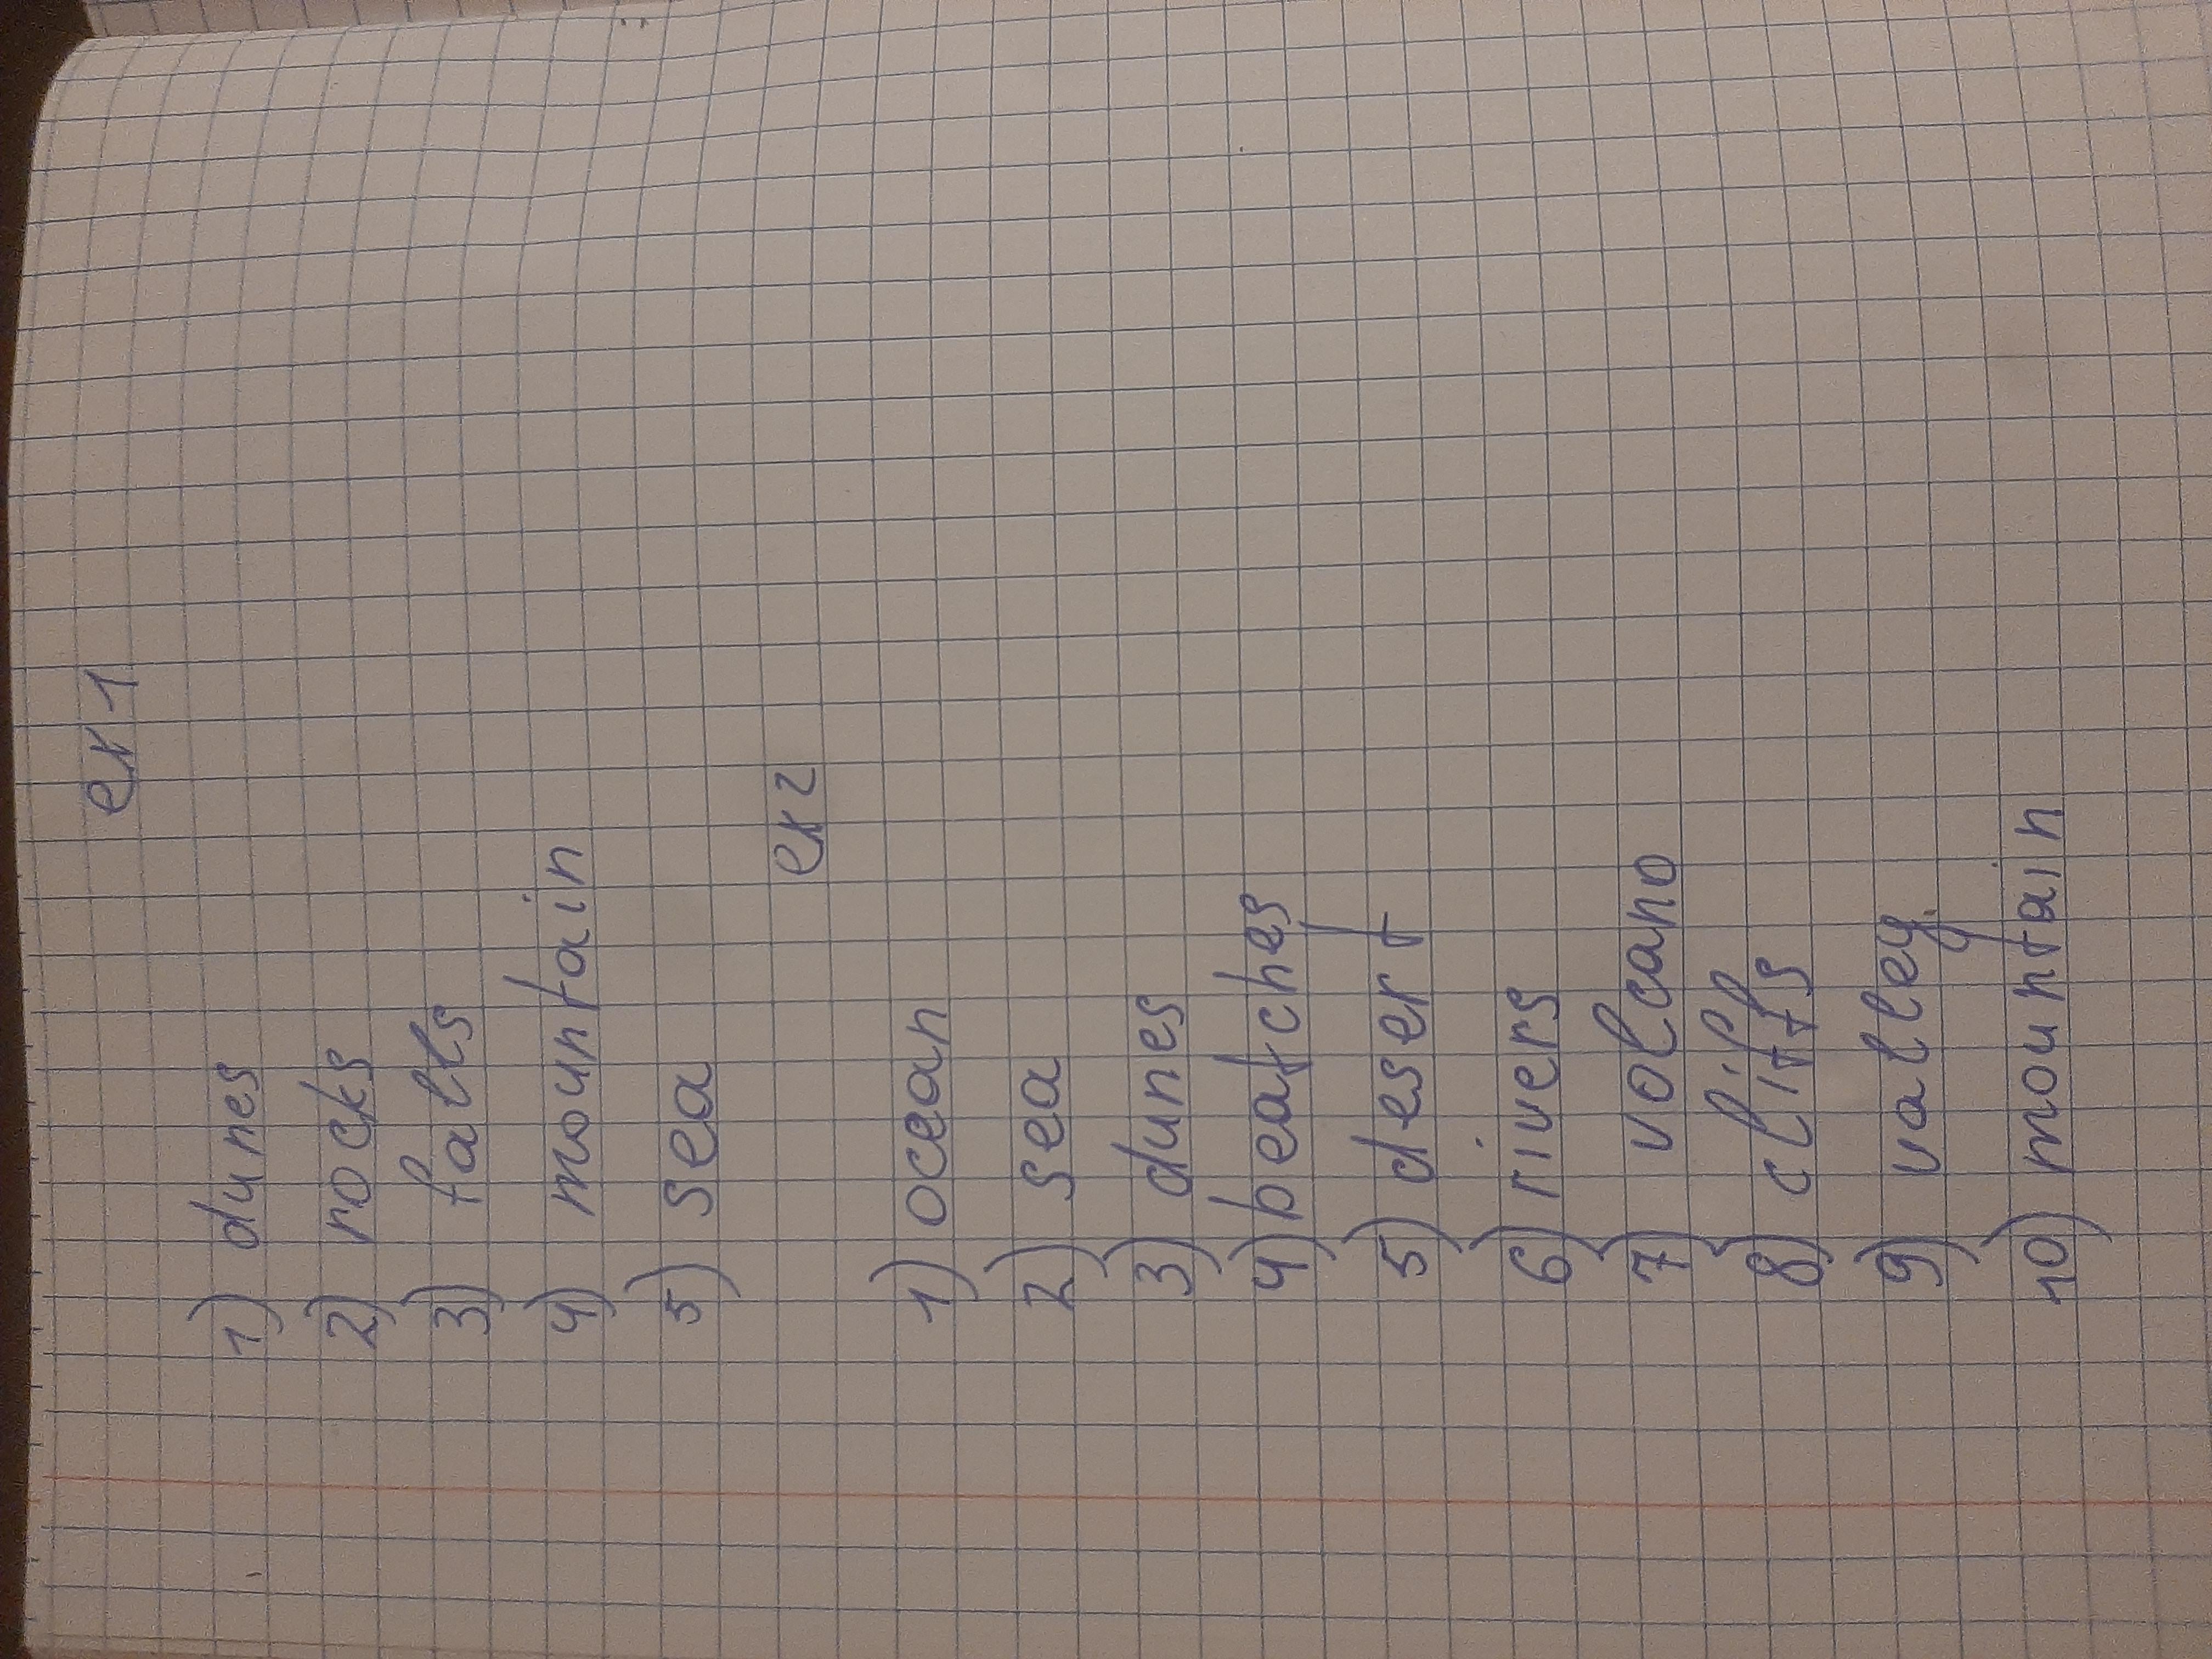 ex 1
1) dunes
2) rocks
3) falls
4) mountain
5) sea
ex 2
1) ocean
2) sea
3) dunes
4) beatches
5) desert
6) rivers
7) volcano
8) cliffs
9) valley
10) mountain